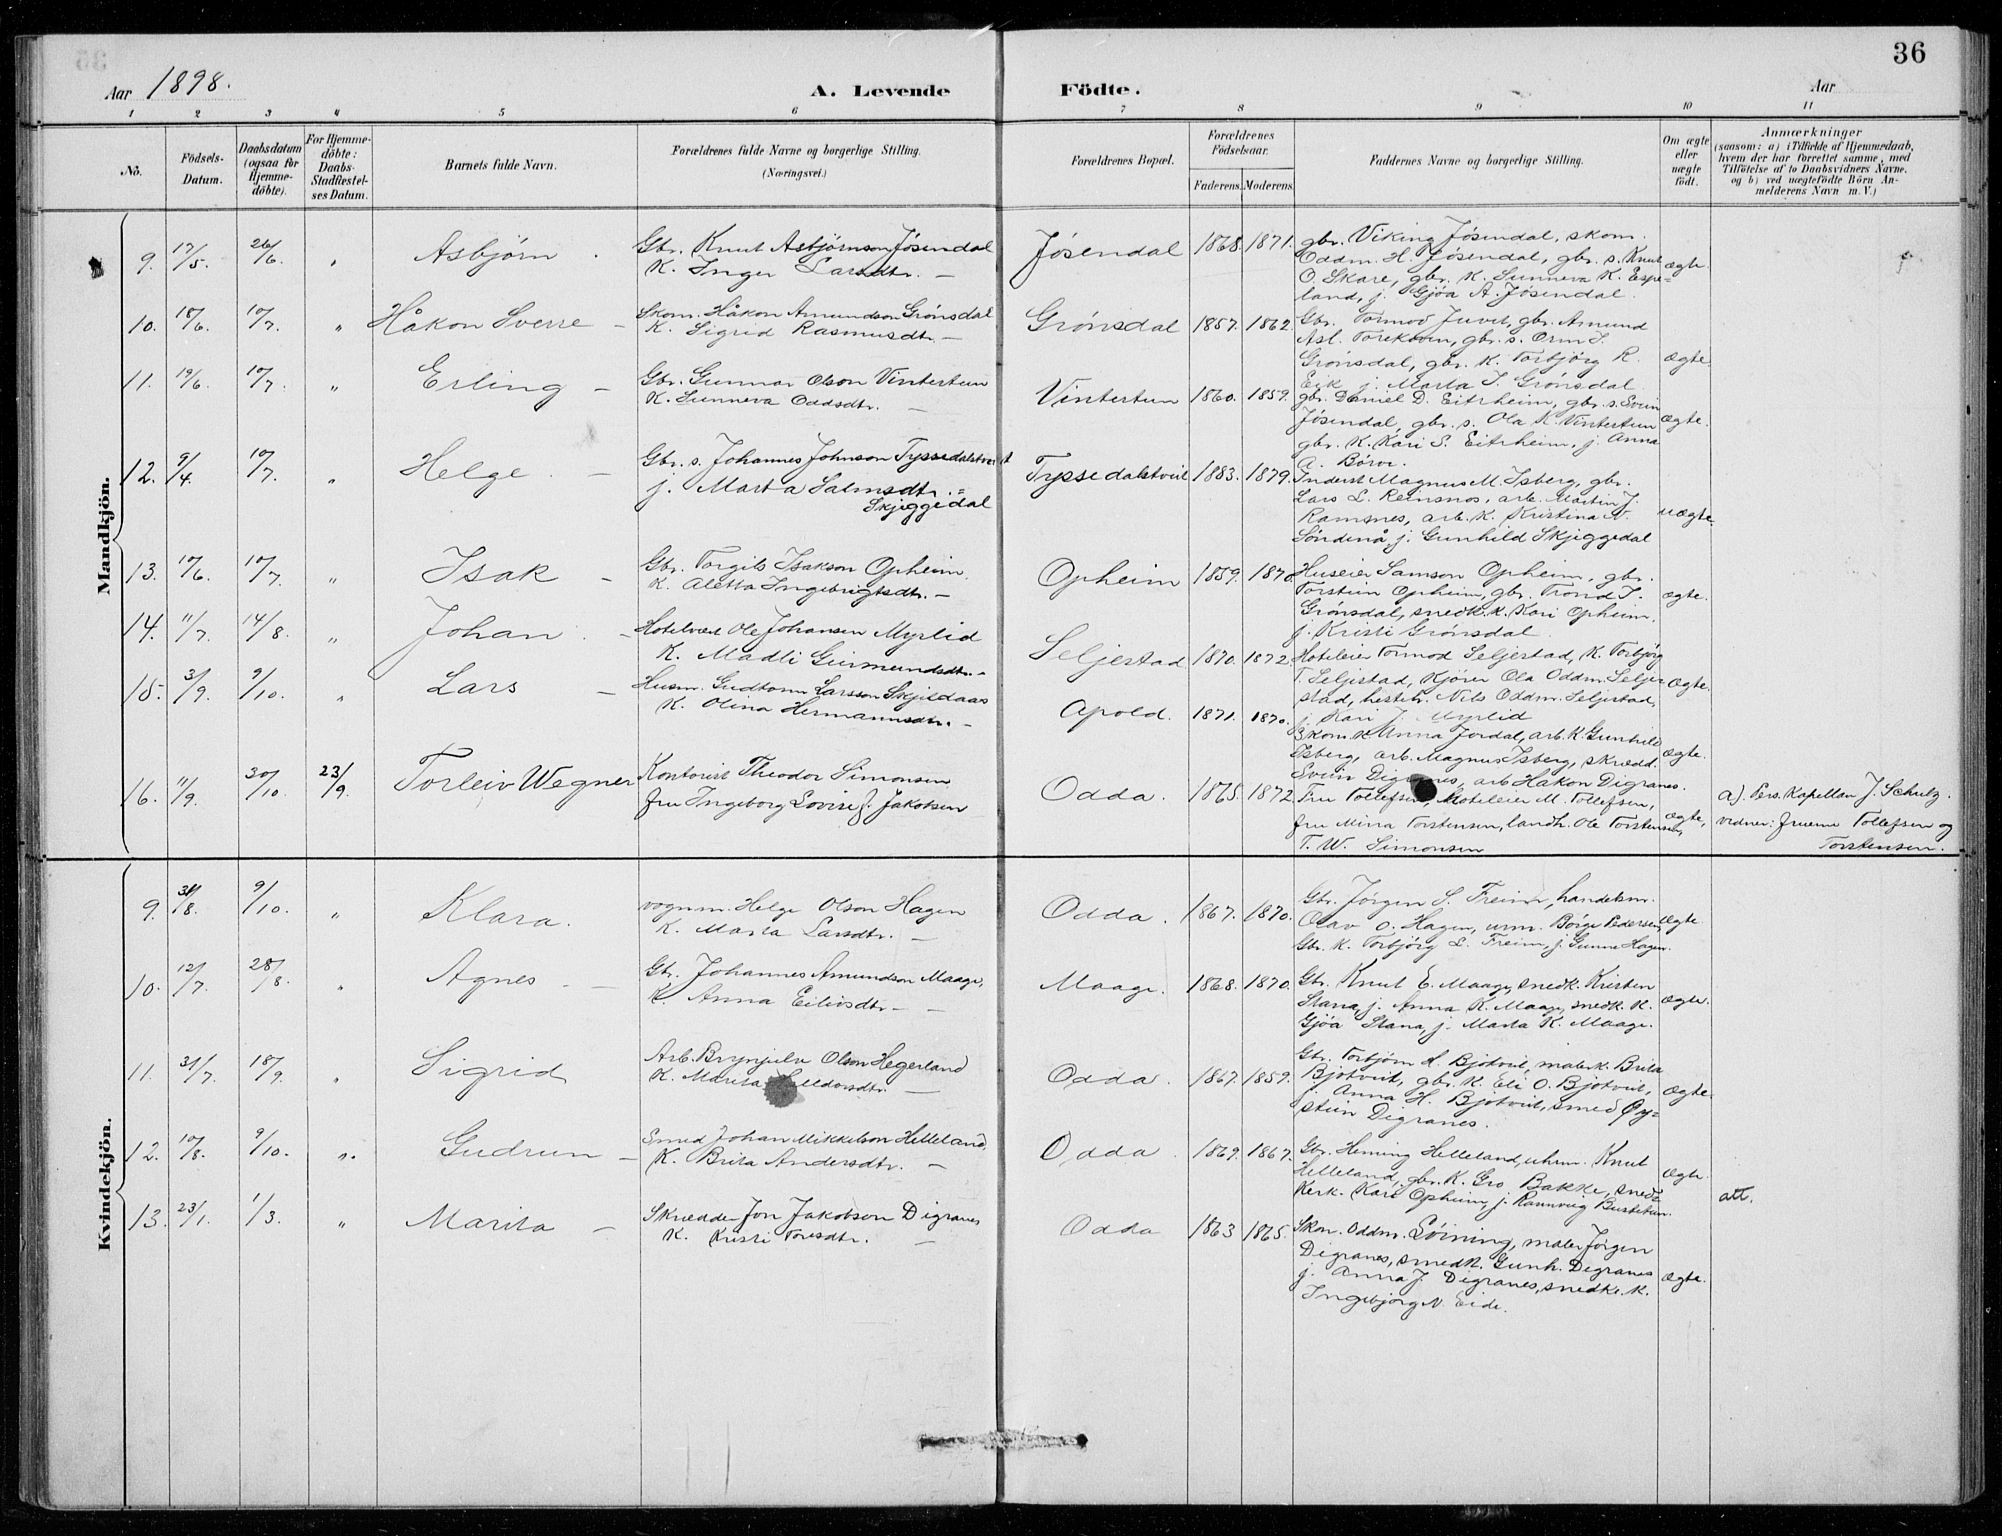 36
Aar 1898.
A. Levende Födte.
Aar
1 2 3 4 5 6 7 8 9 10 11
No.
Födsels-Datum.
Daabsdatum (ogsaa for Hjemme-döbte).
For Hjemme-döbte: Daabs-Stadfæstel-ses Datum.
Barnets fulde Navn.
Forældrenes fulde Navne og borgerlige Stilling.
(Næringsvei.)
Forældrenes Bopæl.
Forældrenes Födselsaar.
Faderens. Moderens.
Faddernes Navne og borgerlige Stilling.
Om ægte eller uægte födt.
Anmærkninger
(saasom: a) i Tilfælde af Hjemmedaab, hvem der har forrettet samme, med Tilföielse af to Daabsvidners Navne, og b) ved uægtefödte Börn An-melderens Navn m. V.)
Mandkjön.
9. 17/5. 26/6. " Asbjørn.
Gbr. Knut Asbjørnson Jøsendal
K. Inger Larsdtr. —
Jøsendal 1868. 1871.
gbr. Viking Jøsendal, skom.
Oddm. H. Jøsendal, gbr. s. Knut
O. Skare, gbr. K. Sunneva K. Espe-
land, j. Gjøa A. Jøsendal.
ægte.
10. 18/6. 10/7. " Håkon Sverre —
Skom. Håkon Amundson Grønsdal
K. Sigrid Rasmusdtr. —
Grønsdal 1857. 1862.
Gbr. Tormod Juvet, gbr. Amund
Asl. Torekoven, gbr. s. Orm S.
Grønsdal, gbr. K. Torbjørg R.
Eik j. Marta T. Grønsdal.
ægte
11. 19/6. 10/7. " Erling —
Gbr. Gunnar Olson Vintertun
K. Sunneva Oddsdtr. —
Vintertun 1860. 1859.
gbr. Daniel D. Eitrheim, gbr. s. Svein
Jøsendal, gbr. s. Ola K. Vintertun
gbr. K. Kari S. Eitrheim, j. Anna
A. Børve.
ægte.
12. 9/4. 10/7. " Helge. —
Gbr. s. Johannes Johnson Tyssedalstveit
j. Marta Salmsdtr. =
Skjeggedal
Tyssedalstveit 1883. 1879.
Inderst Magnus M. Isberg, gbr.
Lars L. Reinsnos, arb. Martin J.
Ramsnes, arb. K. Kristina N.
Søndenå j. Gunhild Skjeggedal
uægte.
13. 10/6. 10/7. " Isak —
Gbr. Torgils Isakson Opheim.
K. Aletta Ingebrigtsdtr. —
Opheim 1859. 1870.
Huseier Samson Opheim, gbr.
Torstein Opheim, gbr. Trond T.
Grønsdal, snedk. K. Kari Opheim,
j. Kristi Grønsdal
ægte.
14. 11/7. 14/8. " Johan —
Hotelvært Ole Johansen Myrlid
K. Madli Geirmundsdtr. —
Seljestad 1870. 1872.
Hoteleier Tormod Seljestad, K. Torbjørg
T. Seljestad, Kjører Ola Oddm. Selje-
stad, hesteh. Nils Oddm. Seljestad,
j. Kari J. Myrlid
ægte.
15. 3/9. 9/10. " Lars —
Husm. Gudtorm Larsson Skjeldaas
K. Olina Hermannsdtr. —
Apold. 1871. 1870.
Skom. K. Anna Jordal, arb. K. Gunhild
Isberg, arb. Magnus Isberg, skrædd.
Svein Digranes, arb. Håkon Digranes.
ægte.
16. 11/9. 30/10. 23/9. Torleiv Wegner
Kontorist Theodor Simonsen
fru Ingeborg Lovise f. Jakobsen
Odda. 1865. 1872.
Fru Tollefsen, Hoteleier M. Tollefsen,
fru Mina Torstensen, landh. Ole Torstensen,
T. W. Simonsen
ægte,
a). Pers. Kapellan J. Schulz.
vidner: fruerne Tollefsen og
Torstensen.
Kvindekjön.
9. 31/8. 9/10. " Klara.
vognm. Helge Olson Hagen
K. Marta Larsdtr. —
Odda. 1867. 1870.
Gbr. Jørgen S. Freim, handelsm.
Olav O. Hagen, urm. Børge Pedersen,
Gbr. K. Torbjørg L. Freim, j. Gunne Hagen.
ægte
10. 12/7. 28/8. " Agnes —
Gbr. Johannes Amundson Maage,
K. Anna Eilivsdtr. —
Maage. 1868. 1870.
Gbr. Knut E. Maage, snedk. Kristen
Stana, j. Anna K. Maage, snedk. K.
Gjøa Stana, j. Marta K. Maage.
ægte.
11. 31/7. 18/9. " Sigrid
Arb. Brynjulv Olson Hegerland
K. Marita
Odda. 1867. 1859.
Gbr. Torbjørn H. Bjotveit, maler K. Brita
Bjotveit, gbr. K. Eli O. Bjotveit,
j. Anna H. Bjotveit, smed Øy-
stein Digranes.
ægte.
12. 10/8. 9/10. " Gudrun —
Smed Johan Mikkelson Helleland,
K. Brita Andersdtr. —
Odda. 1869. 1867.
Gbr. Heming Helleland, uhrm. Knut
Helleland, gbr. K. Gro Bakke, snedk-
Kerk. Kari Opheim, j. Rannveig Bustetun.
ægte.
att.
13. 23/1. 1/3. " Marita —
Skrædder Jon Jakobson Digranes
K. Kristi Toresdtr. —
Odda 1863 1865.
Skom. Oddm. Løining, maler Jørgen
Digranes, smedk. Gunh. Digranes
j. Anna J. Digranes, snedke. K.
Ingebjørg N. Eide.
ægte.